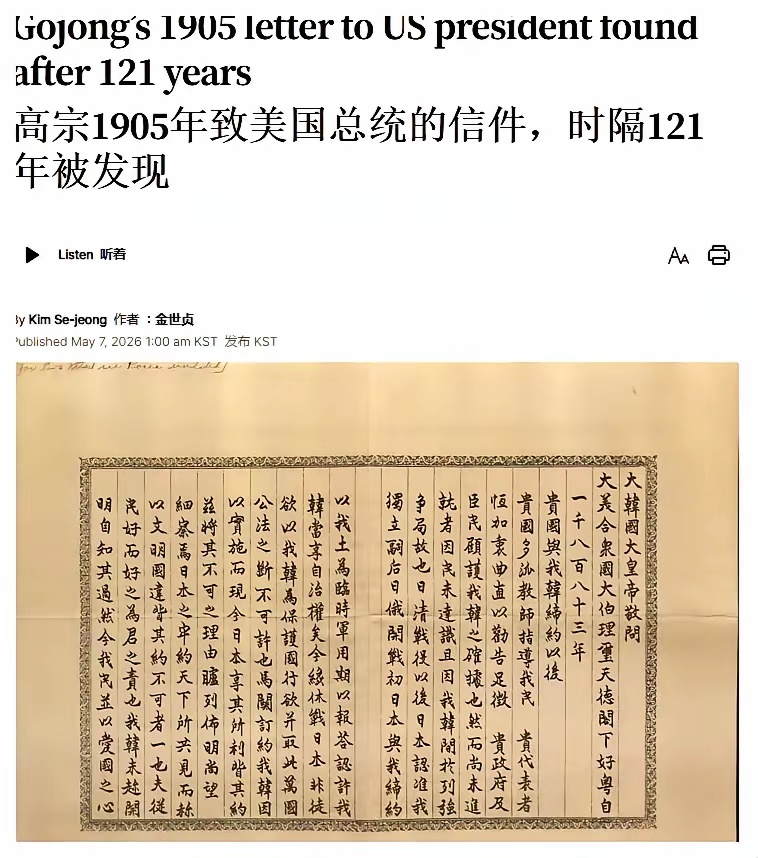 Gojong's 1905 letter to US president found
after 121 years
高宗1905年致美国总统的信件，时隔121
年被发现
Listen 听着
By Kim Se-jeong 作者 ：金世贞
Published May 7, 2026 1:00 am KST 发布 KST
大韓國大皇帝敬問
大美合衆國大伯理璽天德閣下好粤自
一千八百八十三年
貴國與我韓締約以後
貴國多派教師指導我民 貴代表者
恆加衷曲直以勸告足徵 貴政府及
臣民顧護我韓之確據也然而尚未進
就者因民未達識且因我韓間於列強
争局故也日清戰役以後日本認准我
獨立嗣后日俄開戰初日本與我締約
以我土為臨時軍用期以報答認許我
韓當享自治權矣今緣休戰日本非徒
欲以我韓為保護國行欲并取此萬國
公法之斷不可許也馬關訂約我韓因
以實施而現今日本享其所利背其約
茲將其不可之理由臚列佈明尚望
細察焉日本之牢約天下所共見而称
以文明國違背其約不可者一也夫從
民好而好之為君之責也我韓未趁開
明自知其過然今我民並以愛國之心